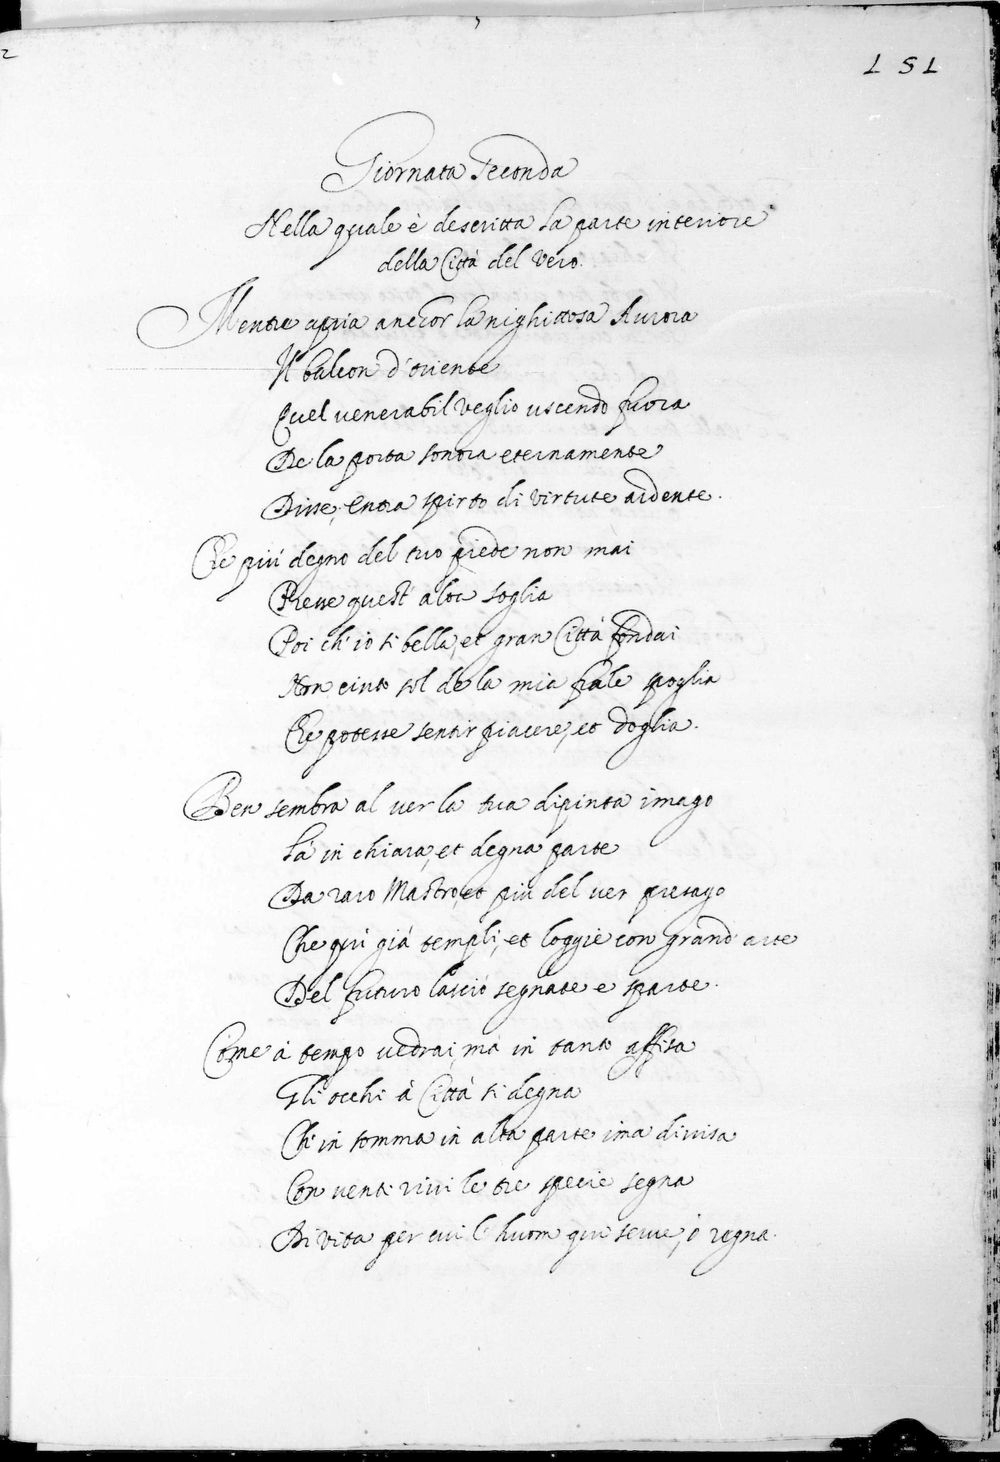 2
L S L
Giornata Seconda
Nella quale è descritta la parte interiore
della Città del Vero.
Mentre apria anchor la nighittosa Aurora
Il balcon d'oriente
Quel venerabil Veglio uscendo fuora
De la porta sonora eternamente
Disse, Entra spirto di virtute ardente.
Che più degno del tuo piede non mai
Presse quest' alta soglia
Poi ch' io sì bella, et gran Città fondai
Non cinto sol de la mia frale spoglia
Che potesse sentir piacere, et doglia.
Ben sembra al ver la tua dipinta imago
Là in chiara, et degna parte
Da raro Mastro, et più del ver presago
Che quì già templi, et loggie con grand' arte
Del futuro lasciò segnate e sparte.
Come à tempo vedrai, mà in tanto affisa
Gli occhi à Città sì degna
Ch' in somma in alta parte ima divisa
Con venti vivi le tre specie segna
Di vita per cui l' huom qui serve, ò regna.